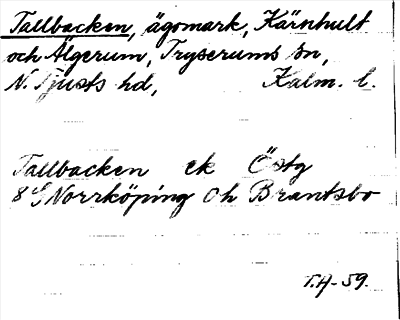 Tallbacken, ägomark, Kärnhult
och Älgerum, Tryserums sn,
N. Tjusts hd, Kalm. l.
Tallbacken ek Östg
8 G Norrköping Oh Brantsbo
T.A-59.